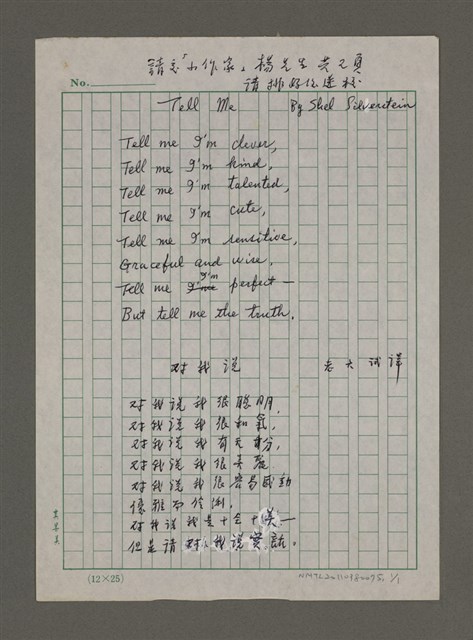 請志「小作家」楊先生黃之員
请排好你送校
No.
Tell Me By Shel Silverstein
Tell me I'm clever,
Tell me I'm kind,
Tell me I'm talented,
Tell me I'm cute,
Tell me I'm sensitive,
Graceful and wise,
Tell me I'm perfect—
But tell me the truth.
对我说 老大试译
对我说我很聪明,
对我说我很和氣,
对我说我有天份,
对我说我很美麗
对我说我很容易感動
優雅而伶俐,
对我说我是十全十美—
但是请对我说實話。
(12×25)
1/1